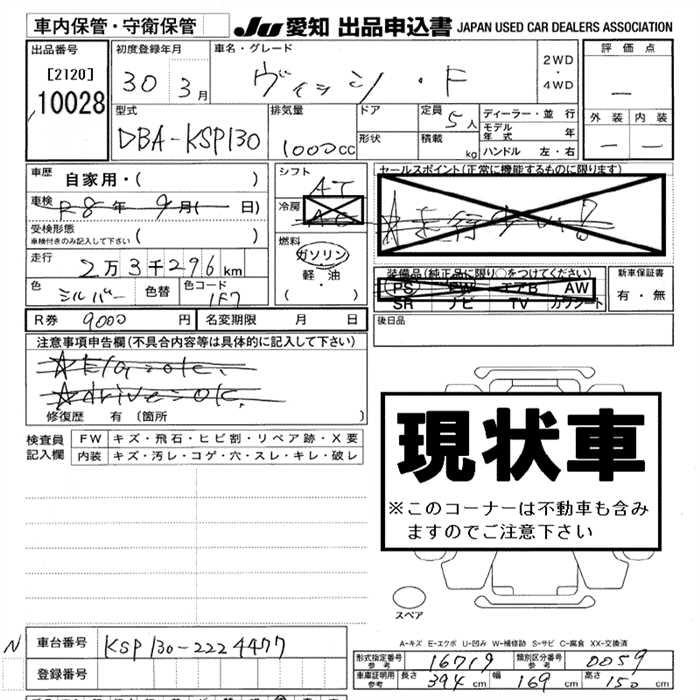 車内保管・守衛保管 JU 愛知 出品申込書 JAPAN USED CAR DEALERS ASSOCIATION
出品番号 初度登録年月 車名・グレード 2WD ・ 4WD 評価点
[2120] 30 3月 ヴィッツ・F —
10028
型式 排気量 ドア 定員 5人 ディーラー・並行 外装 内装
DBA-KSP130 1000cc 形状 積載 kg モデル年式 年 — —
ハンドル 左・右
車歴 自家用・( ) シフト AT セールスポイント(正常に機能するものに限ります)
車検 R8年 9月( 日) 冷房 AC ☆走行少ない!
受検形態 ( )
車検付きのみ記入して下さい
燃料 ガソリン・軽・油 ( )
走行 2万3千296km 装備品(純正品に限り○をつけてください) 新車保証書
色 シルバー 色替 色コード 1F7 PS PW エアB AW 有・無
SR ナビ TV カワシート
R券 9000円 名変期限 月 日 後日品
注意事項申告欄(不具合内容等は具体的に記入して下さい)
☆E/g=ok.
☆drive=ok.
修復歴 有 〔箇所 〕
検査員記入欄 FW キズ・飛石・ヒビ割・リペア跡・X要
内装 キズ・汚レ・コゲ・穴・スレ・キレ・破レ
現状車
※このコーナーは不動車も含み
ますのでご注意下さい
スペア
A-キズ E-エクボ U-凹み W-補修跡 S-サビ C-腐食 XX-交換済
N 車台番号 KSP130-2224477
登録番号
形式指定番号 参考 16719 類別区分番号 参考 0059
車庫証明用 参考 長さ 394cm 幅 169cm 高さ 150cm